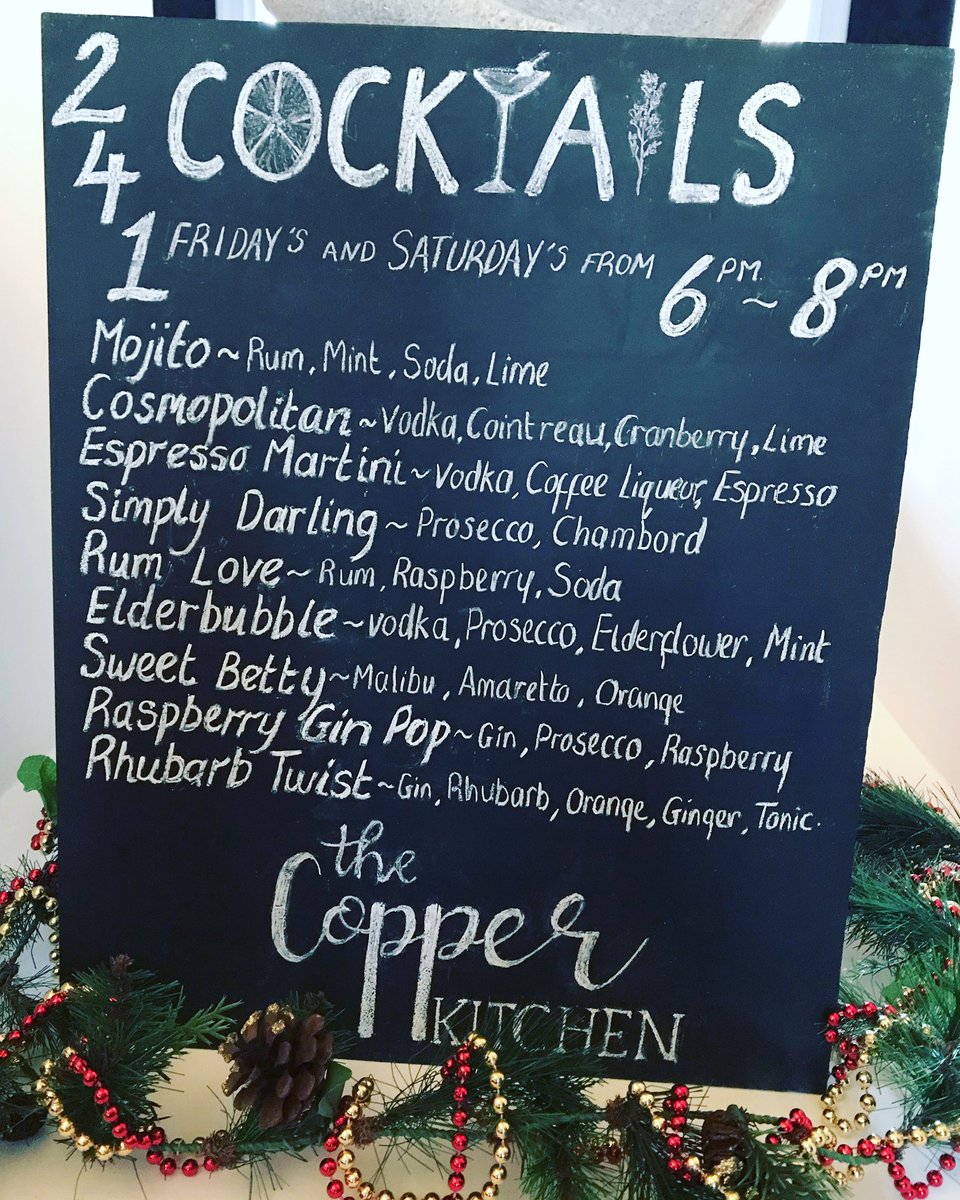 2 4 1 COCKTAILS
FRIDAY'S AND SATURDAY'S FROM 6PM ~ 8PM
Mojito ~ Rum, Mint, Soda, Lime
Cosmopolitan ~ Vodka, Cointreau, Cranberry, Lime
Espresso Martini ~ Vodka, Coffee Liqueur, Espresso
Simply Darling ~ Prosecco, Chambord
Rum Love ~ Rum, Raspberry, Soda
Elderbubble ~ Vodka, Prosecco, Elderflower, Mint
Sweet Betty ~ Malibu, Amaretto, Orange
Raspberry Gin Pop ~ Gin, Prosecco, Raspberry
Rhubarb Twist ~ Gin, Rhubarb, Orange, Ginger, Tonic.
the
Copper
KITCHEN